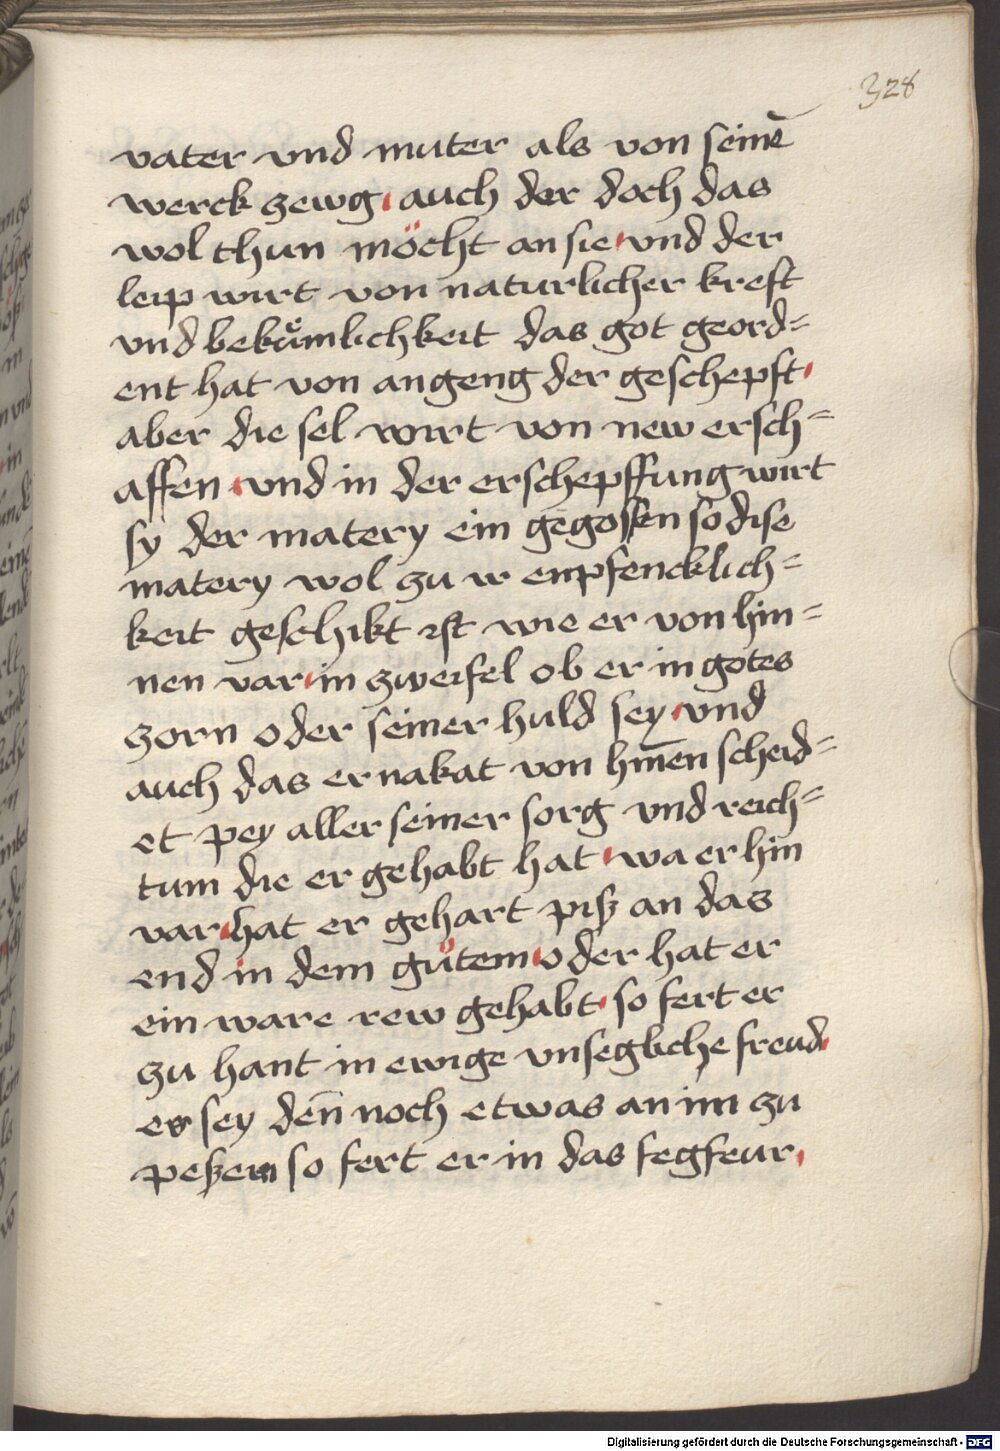 328
vater vnd muter als von seinē
werck zewg auch der doch das
wol thun möcht an sie vnd der
leip wirt von naturlicher kreft
vnd bekůmlichkeit das got geord=
ent hat von angeng der geschepft
aber die sel wirt von new ersch=
affen vnd in der erschepffung wirt
sy der matery ein gegossen so dise
matery wol zu w enpfencklich=
keit geschikt ist wie er von hin=
nen var in zweifel ob er in gotes
zorn oder seiner huld sey vnd
auch das er nakat von hīnen scheid=
et pey aller seiner sorg vnd reich=
tum die er gehabt hat wa er hin
var hat er gehart piß an das
end in dem gůtem oder hat er
ein ware rew gehabt so fert er
zu hant in ewige vnsegliche freud
es sey deñ noch etwas an im zu
peßern so fert er in das fegfeur
Digitalisierung gefördert durch die Deutsche Forschungsgemeinschaft - DFG